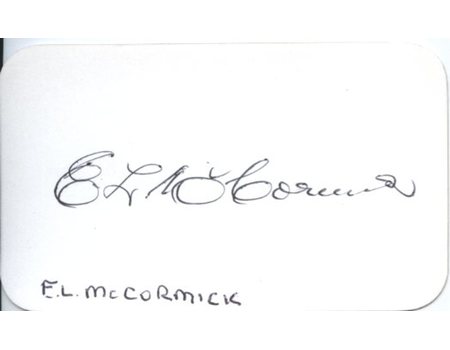 E L McCormick
E.L. McCORMICK